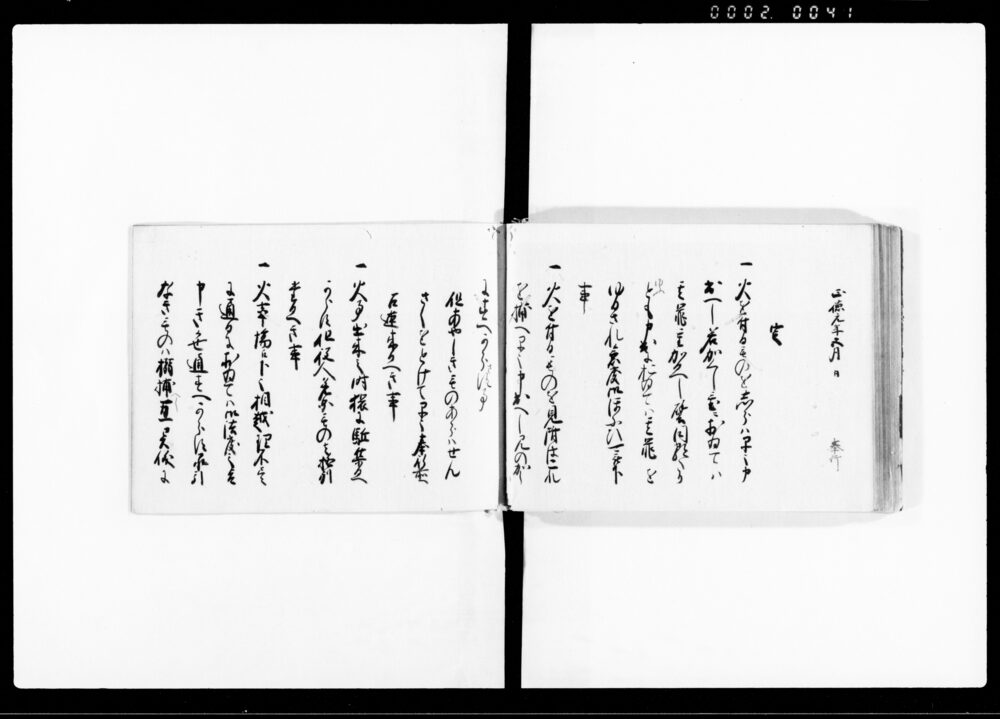 0002 0041
正徳元年五月 日
奉行
定
一 火を付るものをしらハ早々申
出へし若かくし置におゐてハ
其罪重かるへし縦同類たり
とも申出るにおゐてハ其罪を
ゆるされ急度御ほうひ可被下
事
一 火を付るものを見付ハ是
を捕へ早々申出へし見のか
に すへからさる事
但あやしきものあらハせん
さくをとけて早々奉行所
召連来るへき事
一 火事出来之時猥に駈集へ
からす但役人差図のものハ格別
たるへき事
一 火事場江下々相越理不尽
に通るにおゐてハ御法度之旨
申きかせ通すへからす承引
なきものハ搦捕